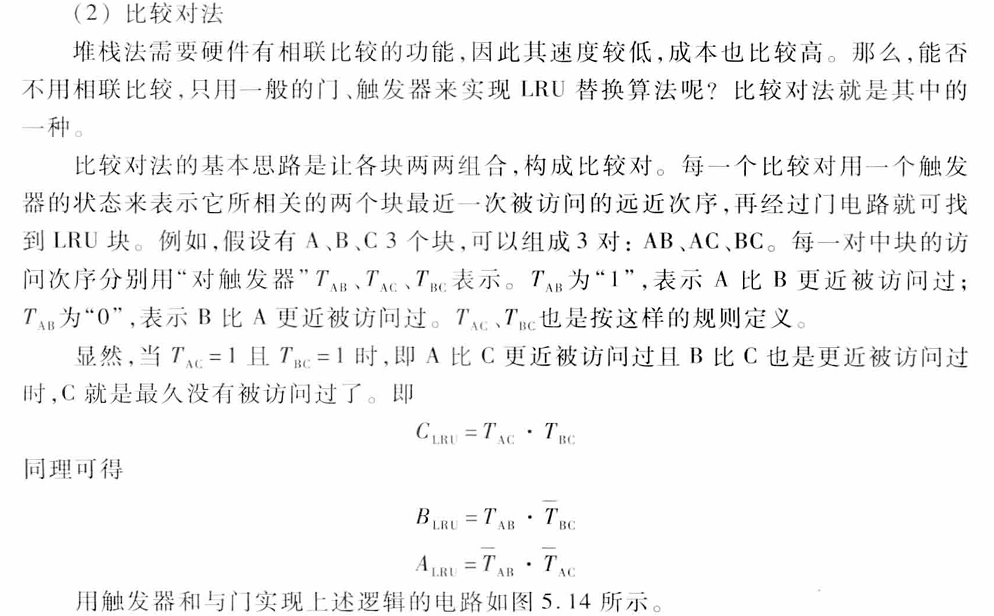 （2）比较对法
堆栈法需要硬件有相联比较的功能，因此其速度较低，成本也比较高。那么，能否
不用相联比较，只用一般的门、触发器来实现 LRU 替换算法呢？比较对法就是其中的
一种。
比较对法的基本思路是让各块两两组合，构成比较对。每一个比较对用一个触发
器的状态来表示它所相关的两个块最近一次被访问的远近次序，再经过门电路就可找
到 LRU 块。例如，假设有 A、B、C 3 个块，可以组成 3 对：AB、AC、BC。每一对中块的访
问次序分别用“对触发器”T_AB、T_AC、T_BC表示。T_AB为“1”，表示 A 比 B 更近被访问过；
T_AB为“0”，表示 B 比 A 更近被访问过。T_AC、T_BC也是按这样的规则定义。
显然，当 T_AC=1 且 T_BC=1 时，即 A 比 C 更近被访问过且 B 比 C 也是更近被访问过
时，C 就是最久没有被访问过了。即
C_LRU = T_AC · T_BC
同理可得
B_LRU = T_AB · T̅_BC
A_LRU = T̅_AB · T̅_AC
用触发器和与门实现上述逻辑的电路如图 5.14 所示。